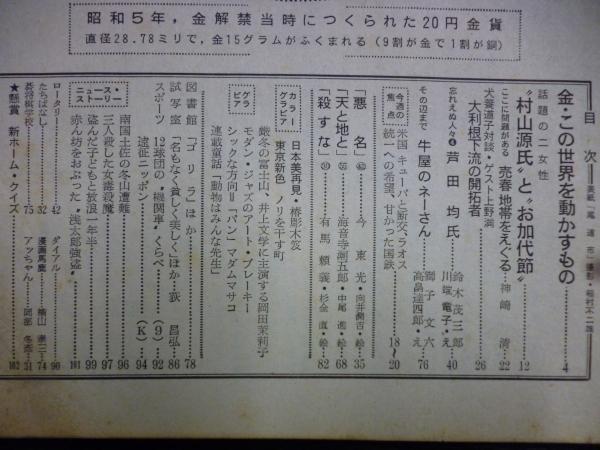 昭和5年，金解禁当時につくられた20円金貨
直径28.78ミリで，金15グラムがふくまれる（9割が金で1割が銅）
目次
表紙「尾道市」撮影・稲村不二雄
金・この世界を動かすもの 4
話題の二女性
“村山源氏”と“お加代節” 12
ここに問題がある 売春地帯をえぐる 神崎清 22
犬養道子対談・ゲスト上野満
大利根下流の開拓者 26
忘れえぬ人々④ 芦田均氏 鈴木茂三郎 40
川端竜子・え
その辺まで 牛屋のネーさん 獅子文六
高畠達四郎・え 76
今週の焦点
米国、キューバと断交、ラオス
統一への希望、甘かった国鉄 18〜20
「悪名」 今東光・向井潤吉・絵 35
「天と地と」 海音寺潮五郎・中尾進・絵 68
「殺すな」 有馬頼義・杉全直・絵 82
カラーグラビア
日本美再見・椿彫木笈
東京新色 ノリを干す町
グラビア
厳冬の富士山、井上文学に主演する岡田茉莉子
モダン・ジャズのアート・ブレーキー
シックな方向＝「パン」マダムマサコ
連載童話「動物はみんな先生」
図書館 「ゴリラ」ほか 78
試写室 「名もなく貧しく美しく」ほか 荻昌弘 86
スポーツ 12球団の“機関車”くらべ （9） 92
遠征ニッポン （K） 94
ニュース・ストーリー
南国土佐の冬山遭難 96
三人殺した女毒殺魔 97
盗んだ子どもと放浪一年半 99
赤ん坊をおぶった“浅太郎強盗” 101
ロータリー 42
ダイアル 90
たちばなし 32
漫画馬鹿 横山泰三 74
碁将棋学校 75
アッちゃん 岡部冬彦 31
★懸賞 新ホーム・クイズ 102